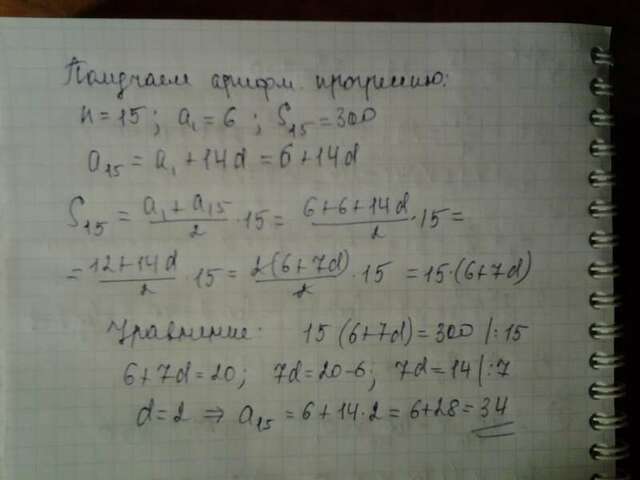 Получаем арифм. прогрессию:
n=15; a₁=6; S₁₅=300
a₁₅ = a₁+14d = 6+14d
S₁₅ = (a₁+a₁₅)/2 · 15 = (6+6+14d)/2 · 15 =
= (12+14d)/2 · 15 = 2(6+7d)/2 · 15 = 15·(6+7d)
Уравнение: 15(6+7d)=300 |:15
6+7d=20; 7d=20-6; 7d=14 |:7
d=2 ⇒ a₁₅ = 6+14·2 = 6+28 = 34